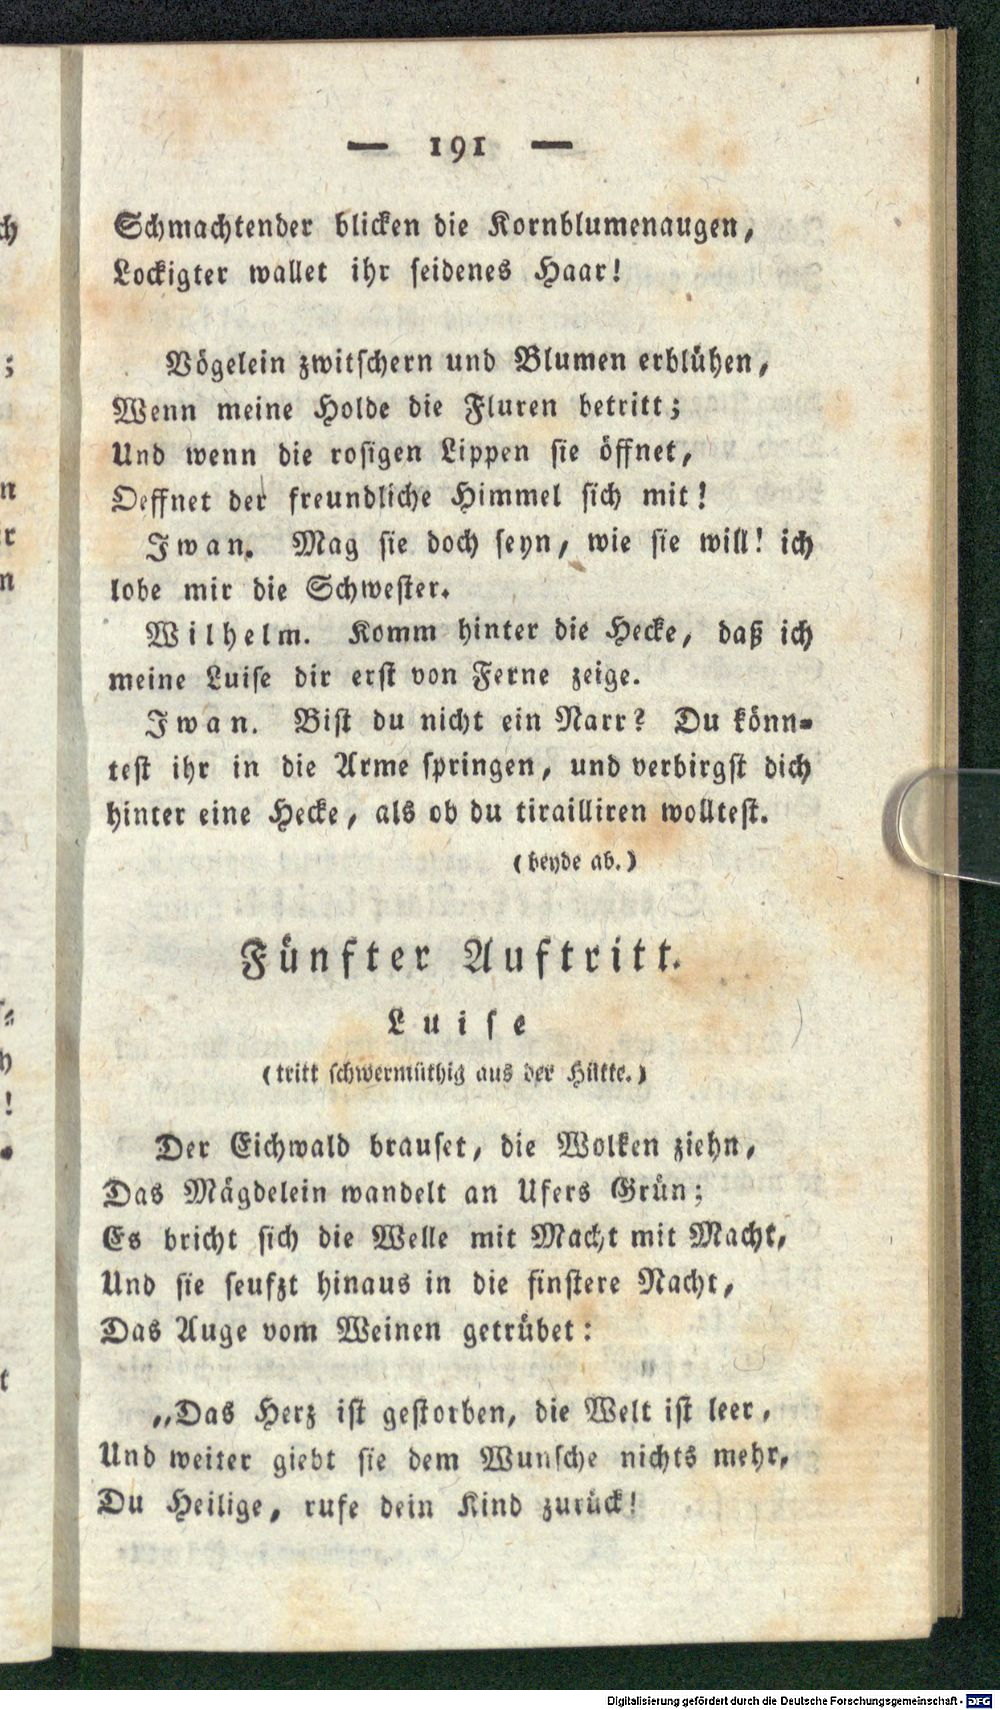 — 191 —
Schmachtender blicken die Kornblumenaugen,
Lockigter wallet ihr seidenes Haar!
Vögelein zwitschern und Blumen erblühen,
Wenn meine Holde die Fluren betritt;
Und wenn die rosigen Lippen sie öffnet,
Oeffnet der freundliche Himmel sich mit!
Iwan. Mag sie doch seyn, wie sie will! ich
lobe mir die Schwester.
Wilhelm. Komm hinter die Hecke, daß ich
meine Luise dir erst von Ferne zeige.
Iwan. Bist du nicht ein Narr? Du könn-
test ihr in die Arme springen, und verbirgst dich
hinter eine Hecke, als ob du tirailliren wolltest.
(beyde ab.)
Fünfter Auftritt.
Luise
(tritt schwermüthig aus der Hütte.)
Der Eichwald brauset, die Wolken ziehn,
Das Mägdelein wandelt an Ufers Grün;
Es bricht sich die Welle mit Macht mit Macht,
Und sie seufzt hinaus in die finstere Nacht,
Das Auge vom Weinen getrübet:
„Das Herz ist gestorben, die Welt ist leer,
Und weiter giebt sie dem Wunsche nichts mehr,
Du Heilige, rufe dein Kind zurück!
Digitalisierung gefördert durch die Deutsche Forschungsgemeinschaft - DFG